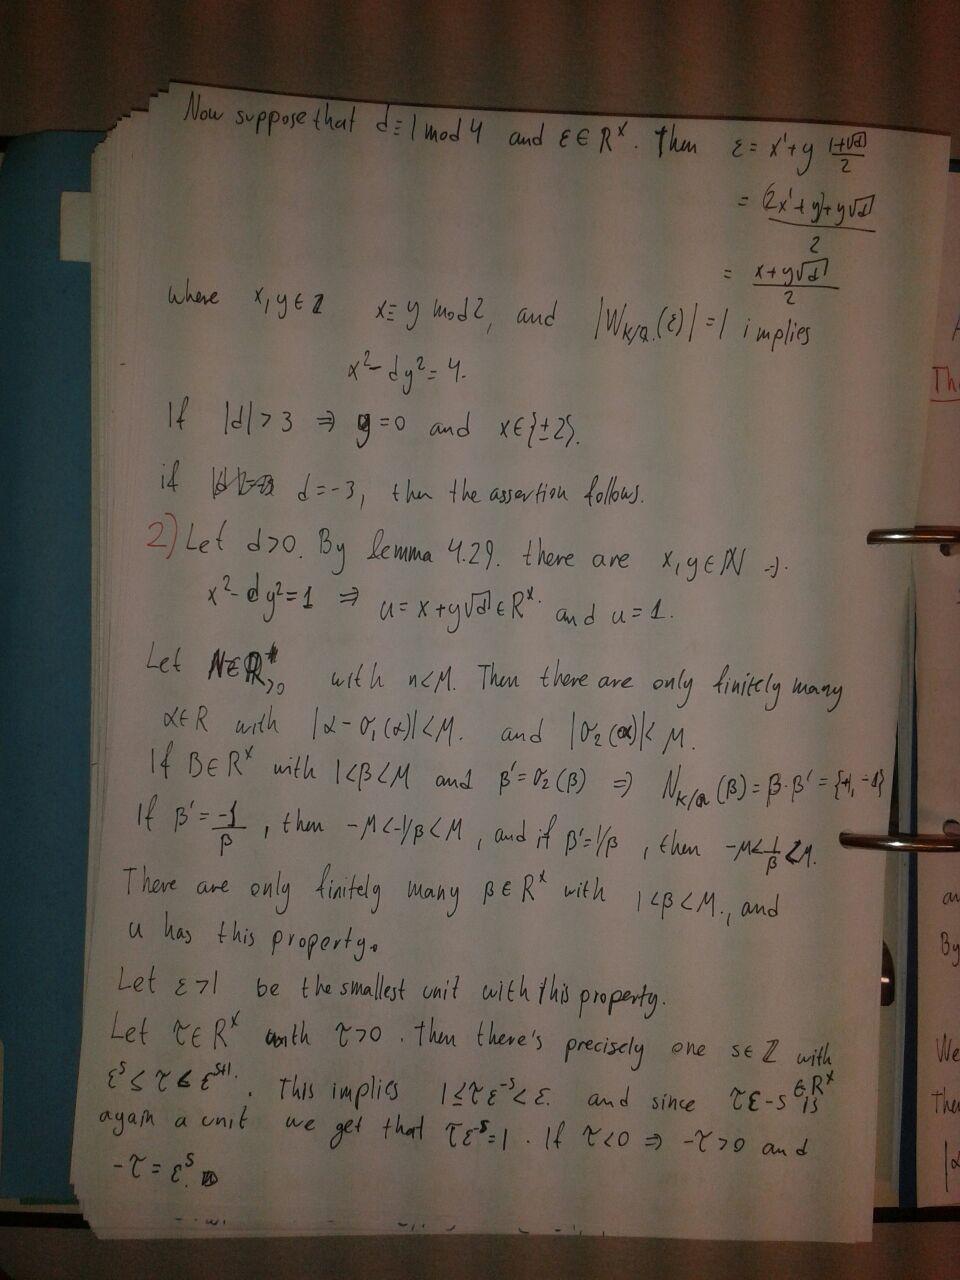 Now suppose that d≡1 mod 4 and ε∈R^x. Then ε = x'+y (1+√d)/2
= ((2x'+y)+y√d)/2
= (x+y√d)/2
where x,y∈Z x≡y mod 2, and |N_{K/Q}(ε)|=1 implies
x²-dy²=4.
If |d|>3 ⇒ y=0 and x∈{±2}.
if d=-3, then the assertion follows.
2) Let d>0. By lemma 4.29. there are x,y∈N
x²-dy²=1 ⇒ u=x+y√d∈R^x. and u=1.
Let with n<M. Then there are only finitely many
α∈R with |α-σ₁(α)|<M. and |σ₂(α)|<M.
If β∈R^x with 1<β<M and β'=σ₂(β) ⇒ N_{K/Q}(β)=β·β'={+1,-1}
If β'=-1/β, then -M<-1/β<M, and if β'=1/β, then -M<1/β<M.
There are only finitely many β∈R^x with 1<β<M., and
u has this property.
Let ε>1 be the smallest unit with this property.
Let τ∈R^x with τ>0. Then there's precisely one s∈Z with
ε^s≤τ<ε^{s+1}. This implies 1≤τε^{-s}<ε. and since τε-s ∈R^x is
again a unit we get that τε^{-s}=1. If τ<0 ⇒ -τ>0 and
-τ=ε^s.
Th
an
By
We
Then